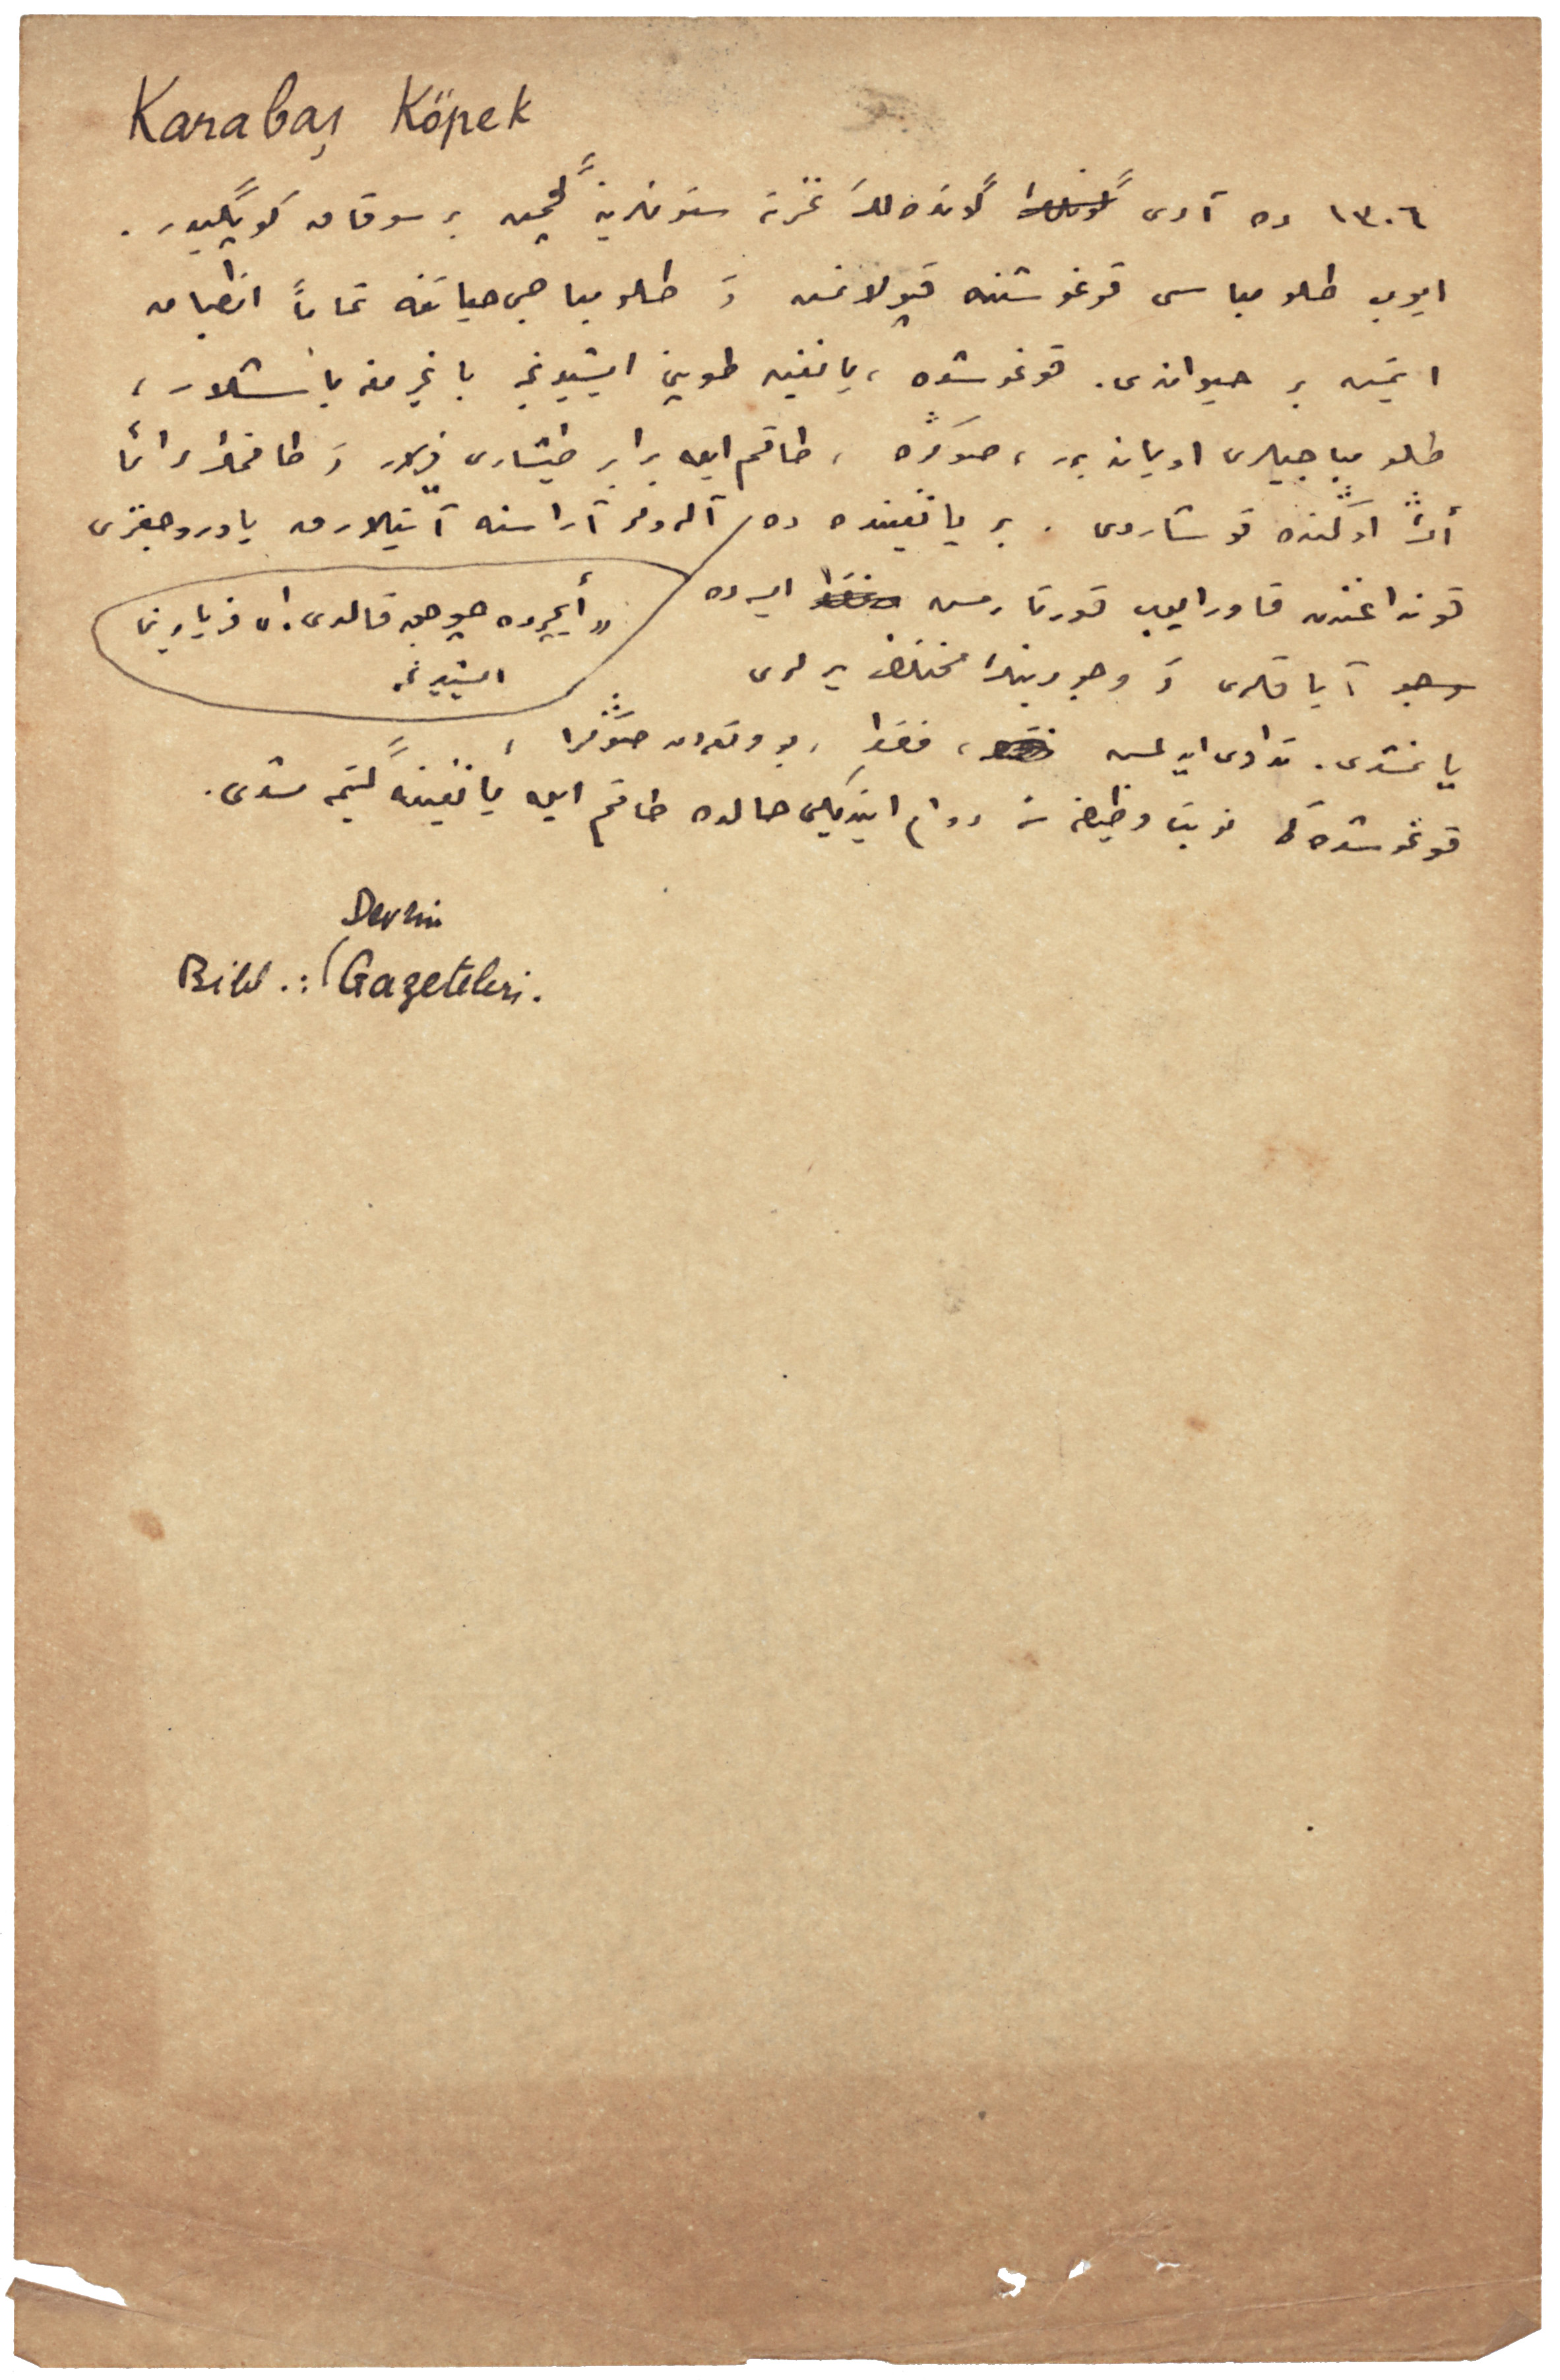 Karabaş Köpek
١٣٠٦ ده آدی گوندەلك غزته ستونلرینە گچمیش بر سوقاق كوپگیدر .
ایوب طلومباسی قوغوشنه قپولانمش وَ طلومباجی حیاتنه تماماً انطباق
ایتمش بر حیواندی . قوغوشده ، یانغین طوپنی ایشیدنجه باغیرمغه باشلار ،
طلومباجیلری اویاندیرر ، صوڭره ، طاقم ایله برابر طیشاری فیرلار وَ طاقمڭ دائما
أڭ اوڭنده قوشاردی . بر یانغینده ده آلولر آراسنه آتیلارق یاوروجغزی
« ایچروده چوجق قالدی . » فریادینی
ایشیدنجه
قونداغندن قاورایوب قورتارمش ایسه ده
آیاقلری وَ وجودینڭ مختلف یرلری
یانمشدی . تداوی ایدلمش ، فقط ، بو وقعەدن صوڭرا ،
قوغوشدەكی نوبت وظیفەسنه دوام ایتدیكی حالده طاقم ایله یانغینە گیتمەمشدی .
Devrin
Bibl.: Gazeteleri.